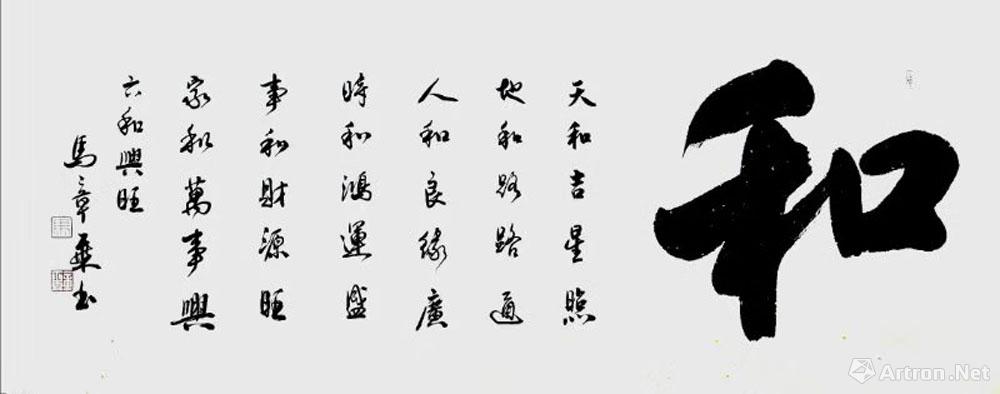 和
天和吉星臨
地和路路通
人和良緣廣
時和鴻運盛
事和財源旺
家和萬事興
六和興旺
馬章乘书
Artron.Net